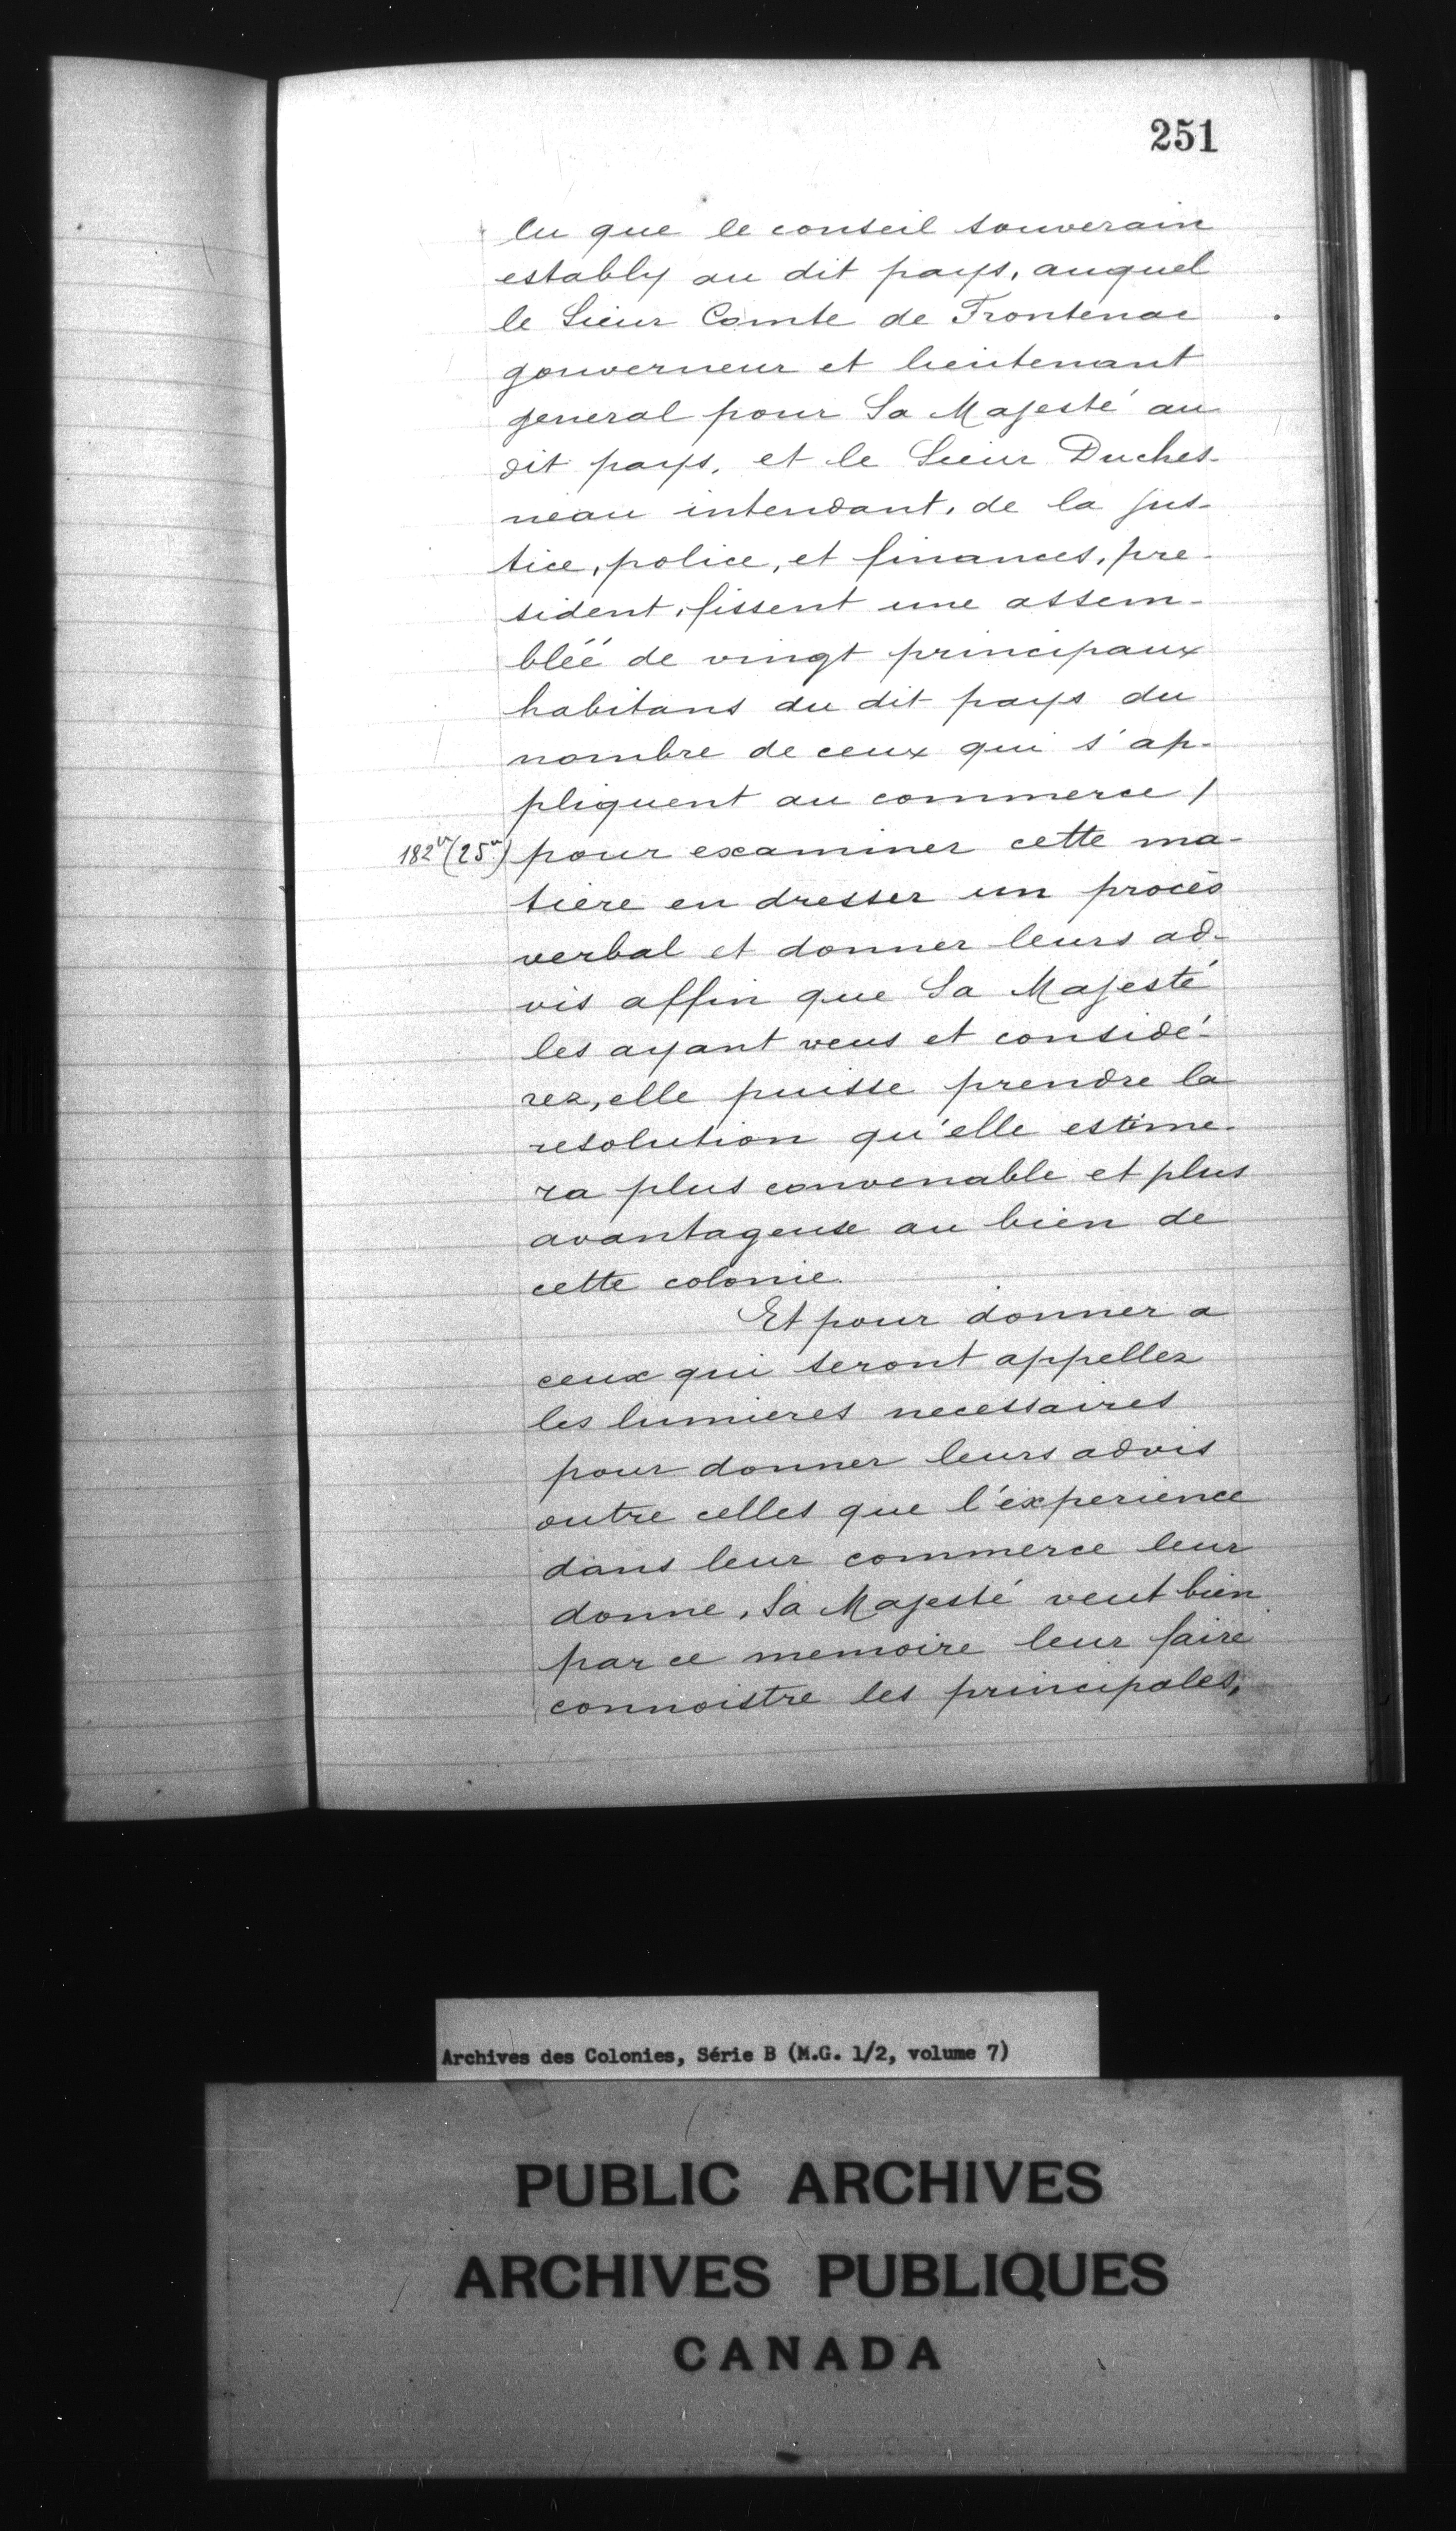 251
lu que le conseil souverain
establly au dit pays, auquel
le Sieur Comte de Frontenac
gouverneur et lieutenant
general pour Sa Majesté au
dit pays, et le Sieur Duches-
neau intendant, de la jus-
tice, police, et finances, pre-
sident, fissent une assem-
bléé de vingt principaux
habitans du dit pays du
nombre de ceux qui s'ap-
pliquent au commerce /
182v (25v) pour examiner cette ma-
tière en dresser un procès
verbal et donner leurs ad-
vis affin que Sa Majesté
les ayant veus et considé-
rez, elle puisse prendre la
resolution qu'elle estime-
ra plus convenable et plus
avantageuse au bien de
cette colonie.
Et pour donner a
ceux qui seront appellez
les lumieres necessaires
pour donner leurs advis
outre celles que l'éxperience
dans leur commerce leur
donne, Sa Majesté veut bien
par ce memoire leur faire
connoistre les principales,
Archives des Colonies, Série B (M.G. 1/2, volume 7)
PUBLIC ARCHIVES
ARCHIVES PUBLIQUES
CANADA